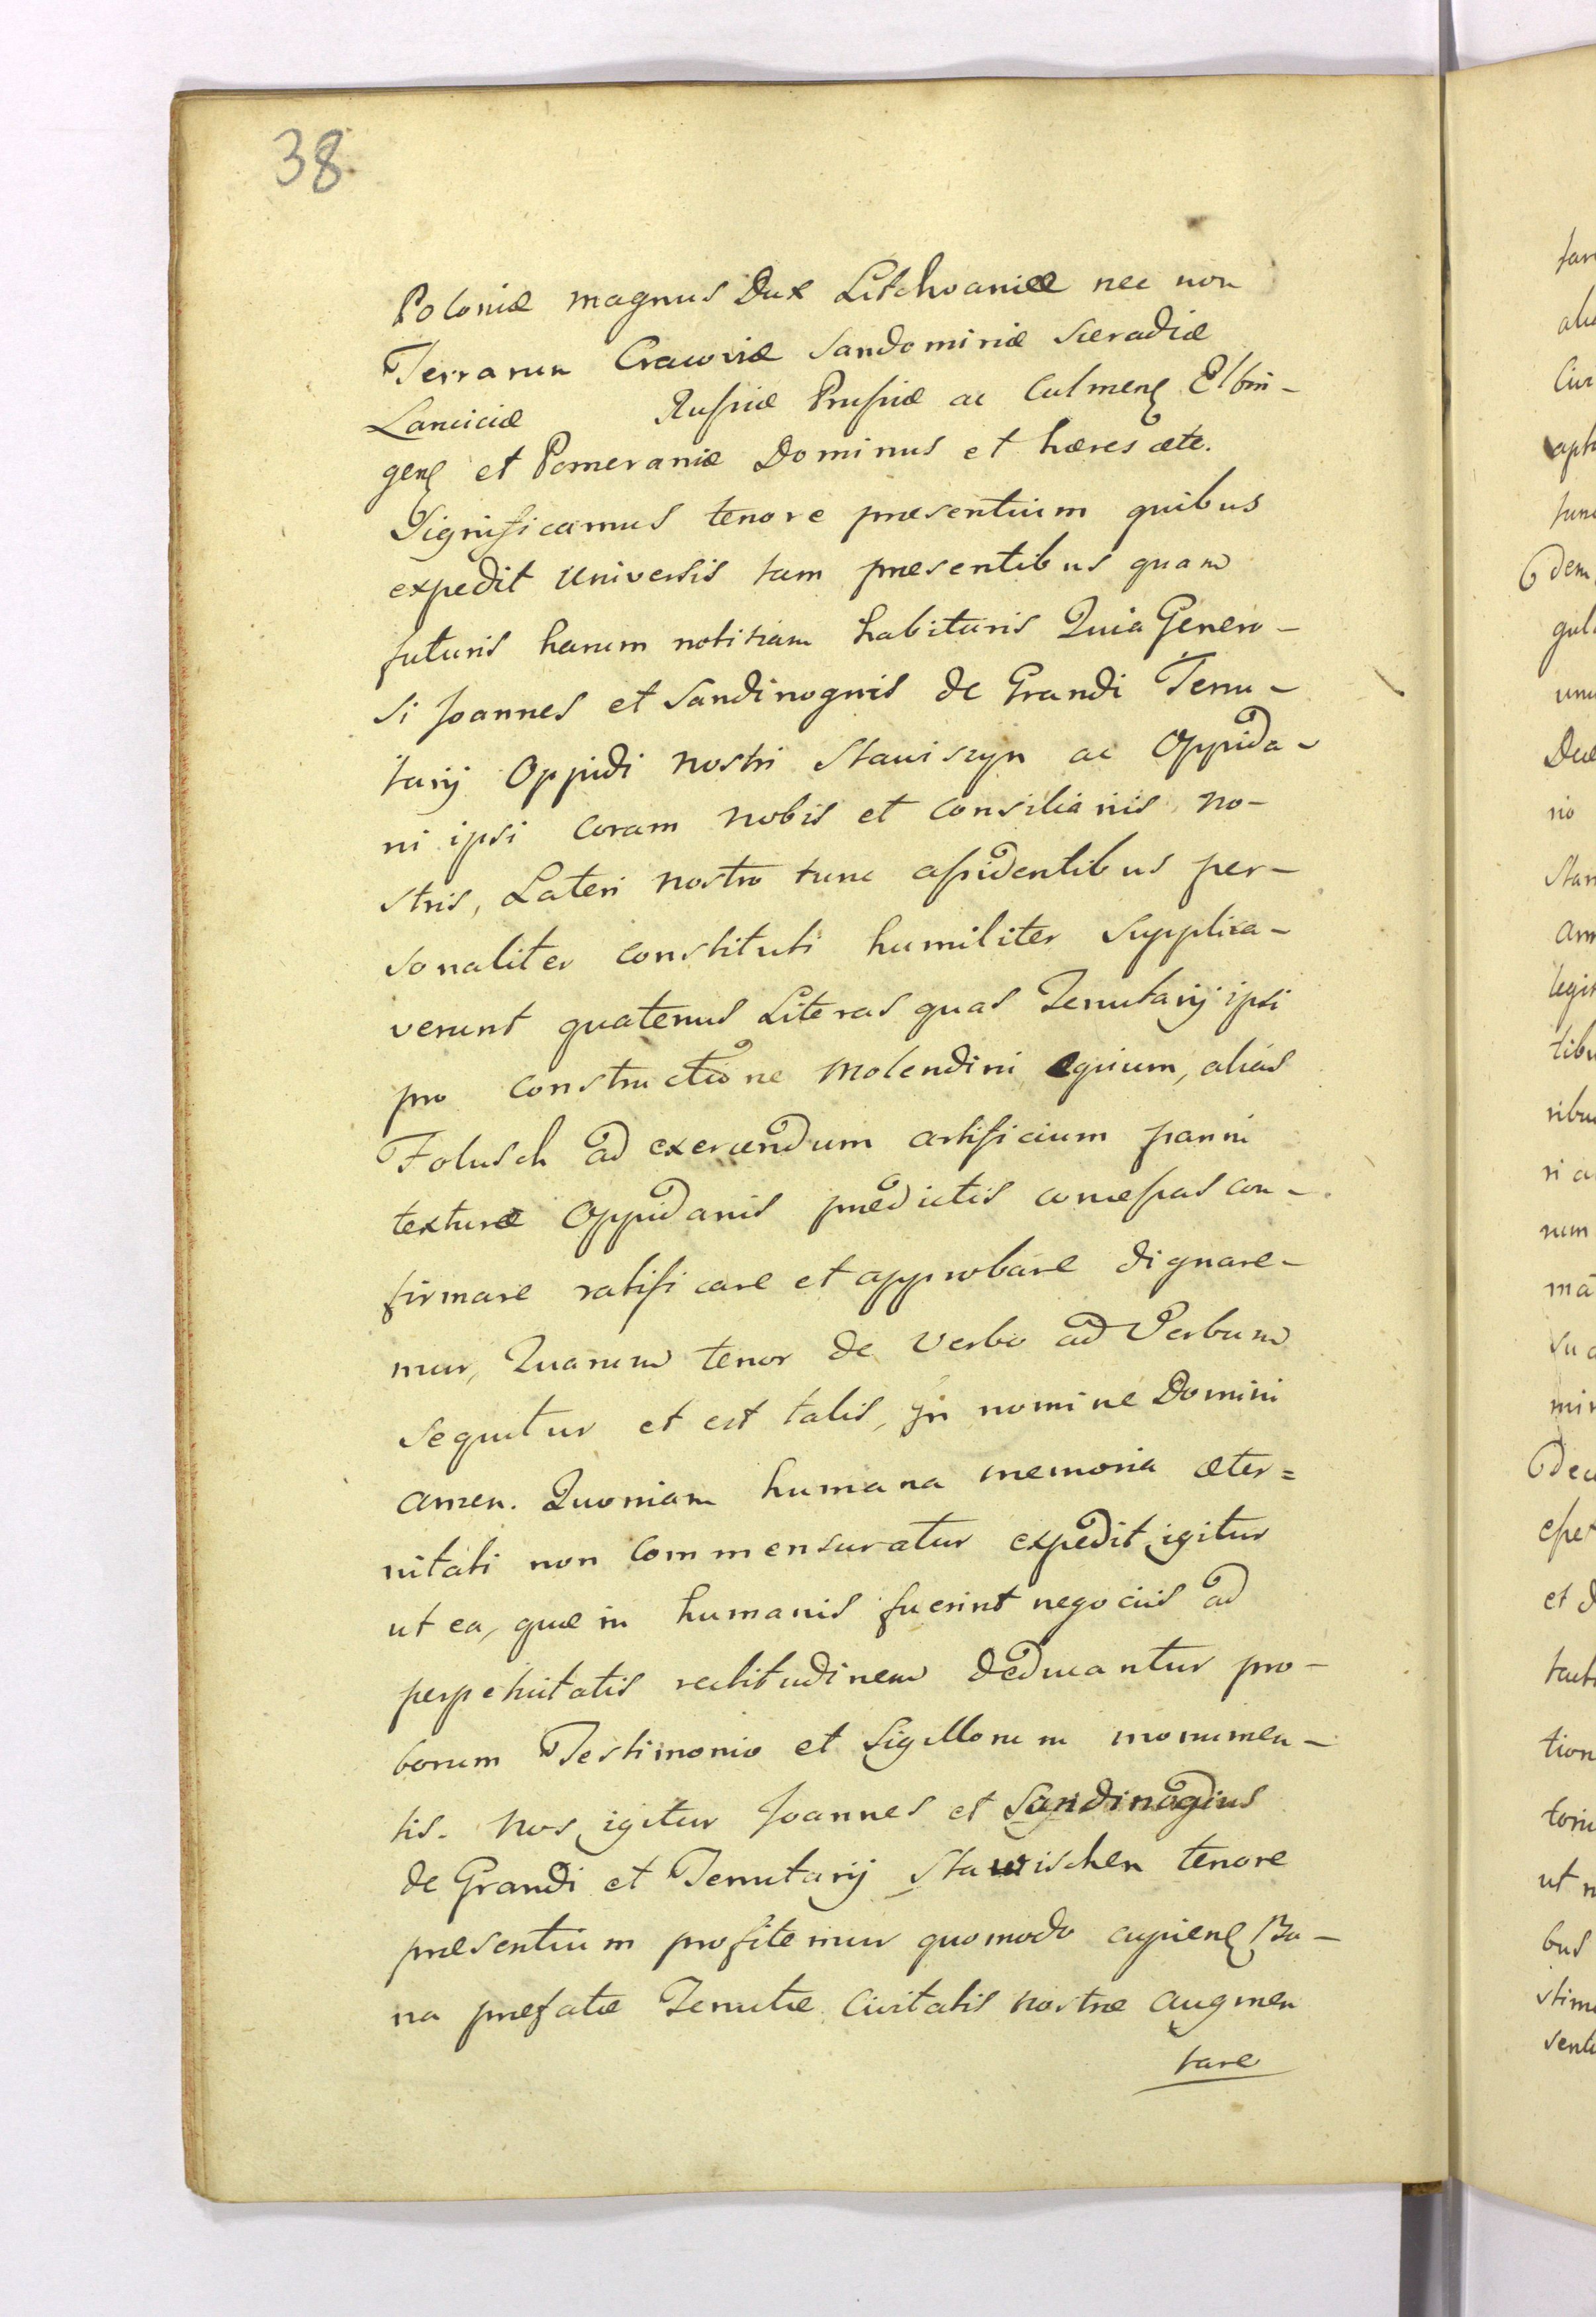 38
Poloniæ magnus Dux Litchvaniæ nec non
Terrarum Cracoviæ Sandomiriæ Sieradiæ
Lanciciæ Rußiæ Prußiæ ac Culmenß Elbin-
genß et Pomeraniæ Dominus et hæres æte.
Significamus tenore præsentium quibus
expedit Universis tam præsentibus quam
futuris harum notitiam habituris Quia Genero-
si Joannes et Sandinognis de Grandi Tenu-
tarij Oppidi nostri Stauiszyn ac Oppida-
ni ipsi coram nobis et Consiliariis no-
stris, Lateri nostro tunc aßidentibus per-
sonaliter constituti humiliter Supplica-
verunt quatenus Literas quas Tenutarij ipsi
pro constructione Molendini equium, alias
Folusch ad exercendum artificium panni
texturæ Oppidanis prædictis conceßas con-
firmare ratificare et approbare dignare-
mur, Quarum tenor de Verbo ad Verbum
Sequitur et est talis, Jn nomine Domini
amen. Quoniam humana memoria æter=
nitati non Commensuratur expedit igitur
ut ea, quæ in humanis fuerint negociis ad
perpetuitatis rectitudinem deducantur pro-
borum Testimonio et Sigillorum monumen-
tis. Nos igitur Joannes et Sandinogius
de Grandi et Tenutarij Stawischen tenore
præsentium profitemur quomodo cupienß Bo-
na præfatæ Tenutæ Civitatis nostræ augmen
tare